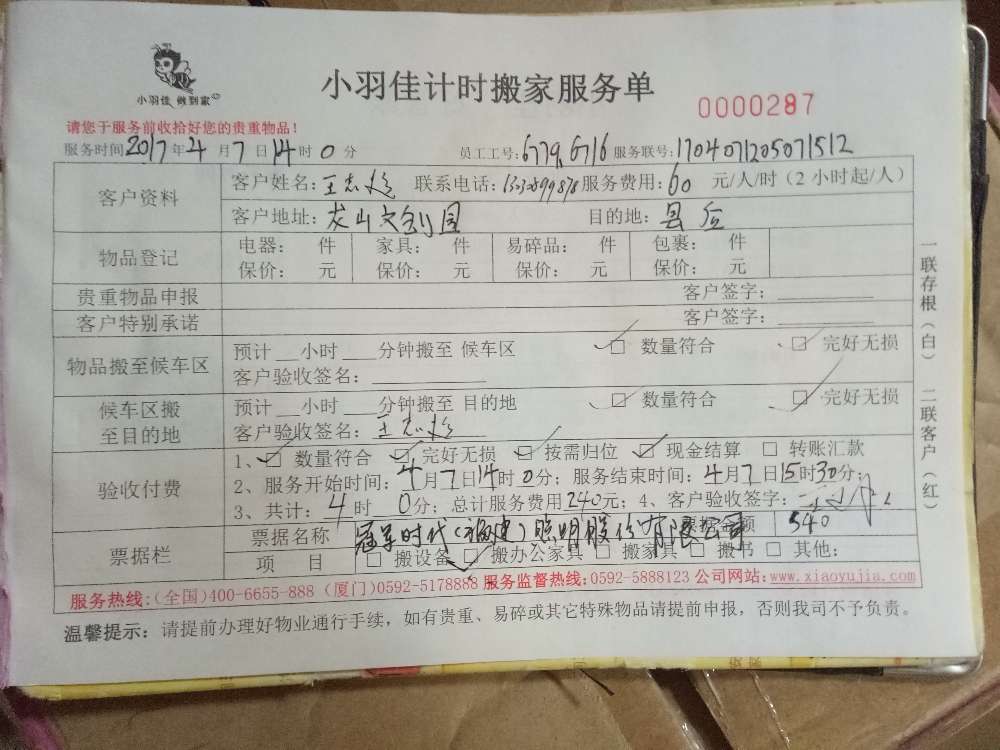 小羽佳 做到家
小羽佳计时搬家服务单
0000287
请您于服务前收拾好您的贵重物品！
服务时间2017年4月7日14时0分 员工工号：6779,6716 服务联号：1704071205071512
客户资料
客户姓名：王志 联系电话： 服务费用：60元/人/时（2小时起/人）
客户地址：龙山文创园 目的地：县后
物品登记
电器： 件 家具： 件 易碎品： 件 包裹： 件
保价： 元 保价： 元 保价： 元 保价： 元
贵重物品申报 客户签字：
客户特别承诺 客户签字：
物品搬至候车区
预计__小时___分钟搬至 候车区 ☑ 数量符合 ☑ 完好无损
客户验收签名：
候车区搬
至目的地
预计__小时___分钟搬至 目的地 ☑ 数量符合 ☑ 完好无损
客户验收签名：王志
验收付费
1、☑ 数量符合 ☑ 完好无损 ☑ 按需归位 ☑ 现金结算 □ 转账汇款
2、服务开始时间：4月7日14时0分；服务结束时间：4月7日15时30分；
3、共计：4时0分；总计服务费用240元；4、客户验收签字：
票据栏
票据名称 冠军时代（福建）照明股份有限公司 票据金额 540
项 目 □ 搬设备 ☑ 搬办公家具 □ 搬家具 □ 搬书 □ 其他：
服务热线：（全国）400-6655-888（厦门）0592-5178888 服务监督热线：0592-5888123 公司网站：www.xiaoyujia.com
温馨提示：请提前办理好物业通行手续，如有贵重、易碎或其它特殊物品请提前申报，否则我司不予负责。
一联存根（白） 二联客户（红）